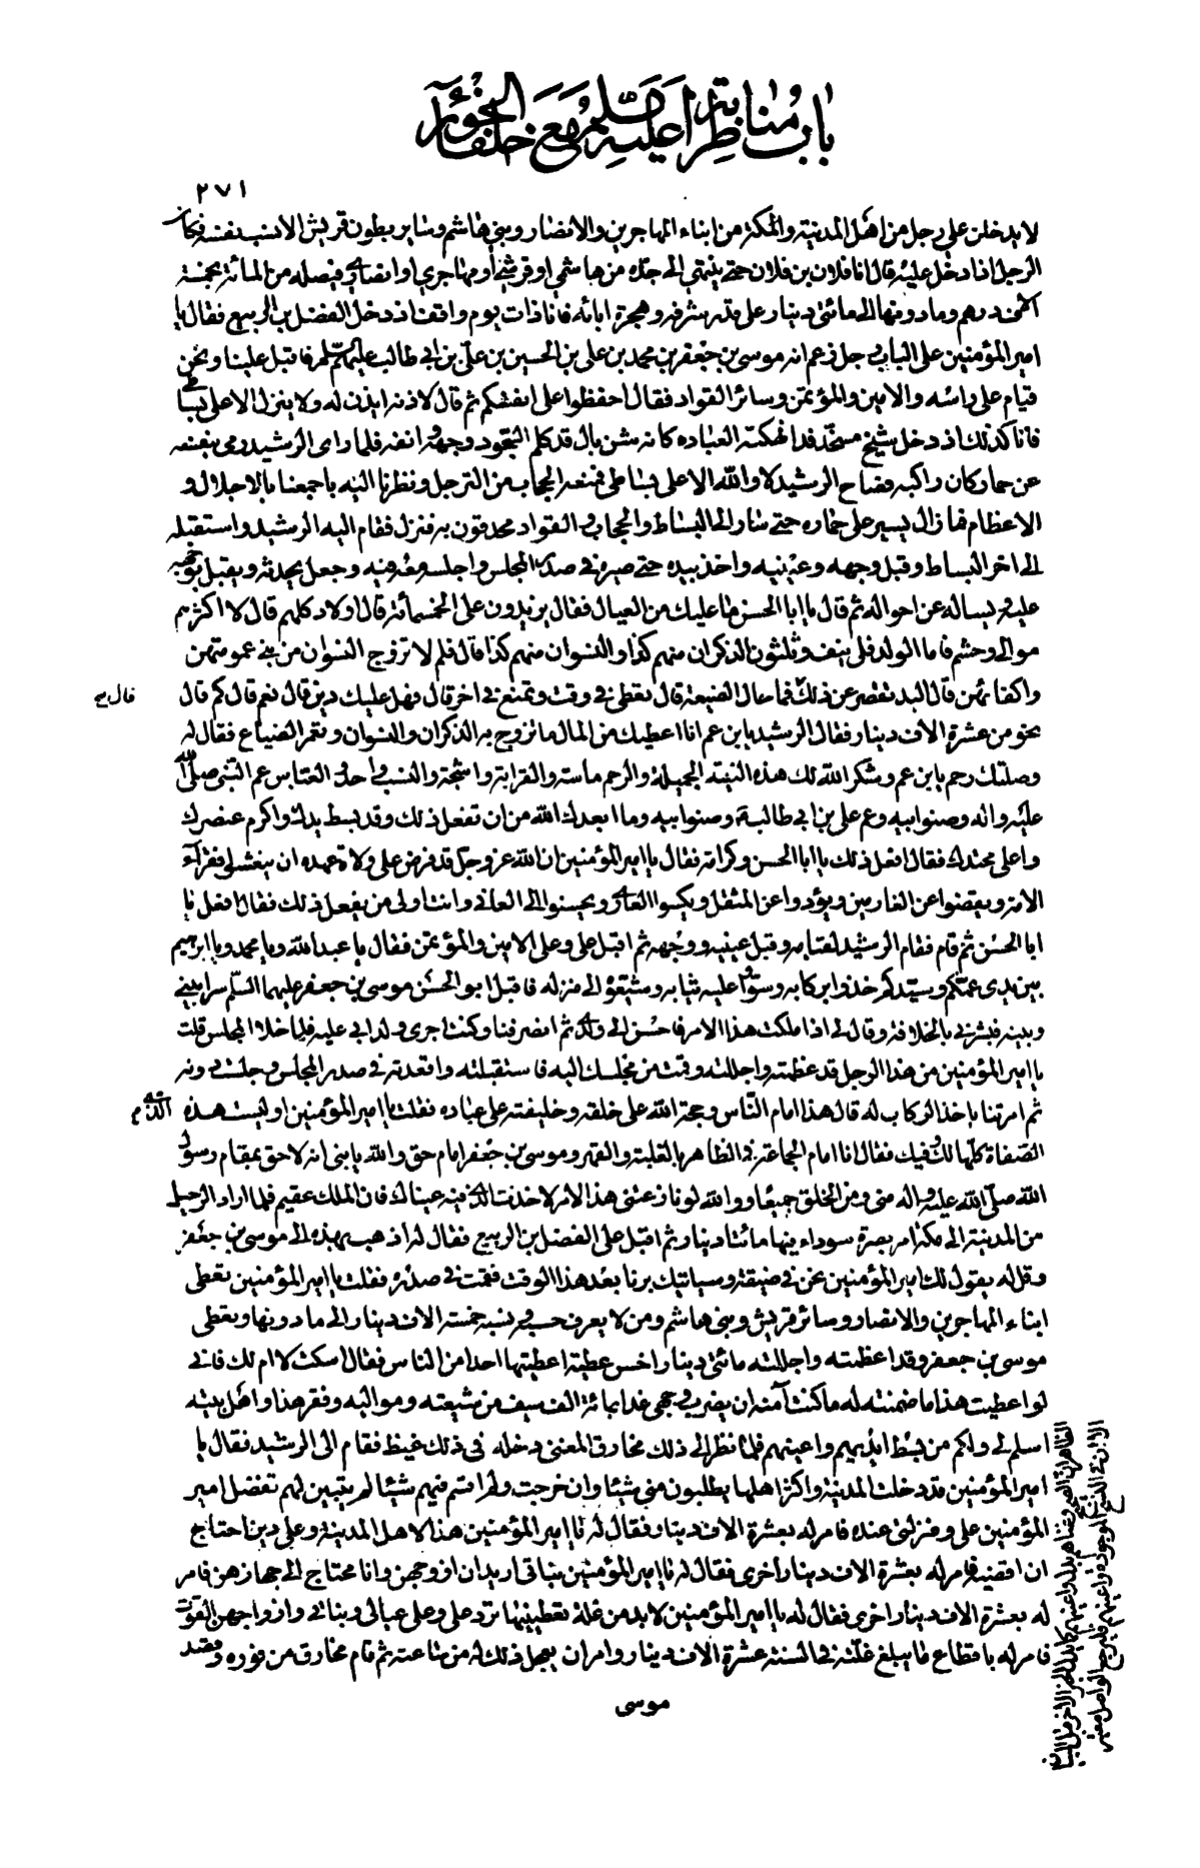 باب مناظراته عليه السلم مع خلفاء الجور
٢٧١
لا يدخلن علي رجل من اهل المدينة والمكة من ابناء المهاجرين والانصار وبني هاشم وساير بطون قريش الا نسب نفسه فكان
الرجل اذا دخل عليه قال انا فلان بن فلان حتى ينتهي الى جده من هاشمي او قرشي أو مهاجري او انصاري فيصله من المائة بخمسة
آلاف درهم وما دونها الى مأتي دينار على قدر شرفه وهجرة ابائه فانا ذات يوم واقف اذ دخل الفضل بن الربيع فقال يا
امير المؤمنين على الباب رجل زعم انه موسى بن جعفر بن محمد بن علي بن الحسين بن علي بن ابي طالب عليهم السلم فاقبل علينا ونحن
قيام على راسه والامين والمؤتمن وسائر القواد فقال احفظوا على انفسكم ثم قال لاذنه ايذن له ولا ينزل الا على بساطي
فانا كذلك اذ دخل شيخ مسخد قد انهكته العباده كانه شن بال قد كلم السجود وجهه وانفه فلما راى الرشيد رمى بنفسه
عن حمار كان راكبه فصاح الرشيد لا والله الا على بساطي فمنعه الحجاب من الترجل ونظرنا اليه باجمعنا بالاجلال و
الاعظام فما زال يسير على حماره حتى سار الى البساط والحجاب والقواد محدقون به فنزل فقام اليه الرشيد واستقبله
الى اخر البساط وقبل وجهه وعينيه واخذ بيده حتى صيره في صدر المجلس واجلسه معه فيه وجعل يحدثه ويقبل بوجهه
عليه ويساله عن احواله ثم قال يا ابا الحسن ما عليك من العيال فقال يزيدون على الخمسمائة قال اولاد كلهم قال لا اكثرهم
موالي وحشم فاما الولد فلي نيف وثلثون الذكران منهم كذا والنسوان منهم كذا قال فلم لا تزوج النسوان من بني عمومتهن
واكفائهن قال اليد تقصر عن ذلك فما حال الضيعة قال تعطي في وقت وتمنع في اخر قال فهل عليك دين قال نعم قال كم قال
قال
نحو من عشرة الاف دينار فقال الرشيد يا بن عم انا اعطيك من المال ما تزوج به الذكران والنسوان وتعمر الضياع فقال له
وصلتك رحم يا بن عم وشكر الله لك هذه النية الجميلة والرحم ماسة والقرابة واشجة والنسب واحد والعباس عم النبي صلى الله
عليه واله وصنو ابيه وعم علي بن ابي طالب وصنو ابيه وما ابعدك الله من ان تفعل ذلك وقد بسط يدك واكرم عنصرك
واعلى محتدك فقال افعل ذلك يا ابا الحسن وكرامة فقال يا امير المؤمنين ان الله عز وجل قد فرض على ولاة عهده ان ينعشوا فقراء
الامة ويقضوا عن الغارمين ويؤدوا عن المثقل ويكسوا العاري ويحسنوا الى العاني وانت اولى من يفعل ذلك فقال افعل يا
ابا الحسن ثم قام فقام الرشيد لقيامه وقبل عينيه ووجهه ثم اقبل علي وعلى الامين والمؤتمن فقال يا عبد الله ويا محمد ويا ابرهيم
بين يدي عمكم وسيدكم خذوا بركابه وسووا عليه ثيابه وشيعوه الى منزله فاقبل ابو الحسن موسى بن جعفر عليهما السلم سرا بيني
وبينه فبشرني بالخلافة وقال لي اذا ملكت هذا الامر فاحسن الى ولدي ثم انصرفنا وكنت اجرى ولد ابي عليه فلما خلا المجلس قلت
يا امير المؤمنين من هذا الرجل قد عظمته واجللته وقمت من مجلسك اليه فاستقبلته واقعدته في صدر المجلس وجلست دونه
ثم امرتنا باخذ الركاب له قال هذا امام الناس وحجة الله على خلقه وخليفته على عباده فقلت يا امير المؤمنين اوليست هذه
الصفاة كلها لك وفيك فقال انا امام الجماعة في الظاهر بالغلبة والقهر وموسى بن جعفر امام حق والله يا بني انه لاحق بمقام رسول
الله صلى الله عليه واله مني ومن الخلق جميعا ووالله لو نازعتني هذا الامر لاخذت الذي فيه عيناك فان الملك عقيم فلما اراد الرحيل
من المدينة الى مكة امر بصرة سوداء فيها مائتا دينار ثم اقبل على الفضل بن الربيع فقال له اذهب بهذه الى موسى بن جعفر
وقل له يقول لك امير المؤمنين نحن في ضيقة وسياتيك برنا بعد هذا الوقت فقمت في صدره فقلت يا امير المؤمنين تعطي
ابناء المهاجرين والانصار وسائر قريش وبني هاشم ومن لا يعرف حسبه ونسبه خمسة الاف دينار الى ما دونها وتعطي
موسى بن جعفر وقد اعظمته واجللته مائتي دينار اخس عطية اعطيتها احدا من الناس فقال اسكت لا ام لك فاني
لو اعطيت هذا ما ضمنته له ما كنت آمنه ان يضرب وجهي غدا بمائة الف سيف من شيعته ومواليه وفقر هذا واهل بيته
اسلم لي ولكم من بسط ايديهم واعينهم فلما نظر الى ذلك مخارق المغني دخله في ذلك غيظ فقام الى الرشيد فقال يا
امير المؤمنين قد دخلت المدينة واكثر اهلها يطلبون مني شيئا وان خرجت ولم اقسم فيهم شيئا لم يتبين لهم تفضل امير
المؤمنين علي ومنزلتي عنده فامر له بعشرة الاف دينار فقال له يا امير المؤمنين هذا لاهل المدينة وعلي دين احتاج
ان اقضيه فامر له بعشرة الاف دينار اخرى فقال له يا امير المؤمنين بناتي اريد ان ازوجهن وانا محتاج الى جهازهن فامر
له بعشرة الاف دينار اخرى فقال له يا امير المؤمنين لا بد من غلة تعطينيها ترد علي وعلى عيالي وبناتي وازواجهن القوت
فامر له باقطاع ما يبلغ غلته في السنة عشرة الاف دينار وامر ان يعجل ذلك له من ساعته ثم قام مخارق من فوره وقصد
موسى